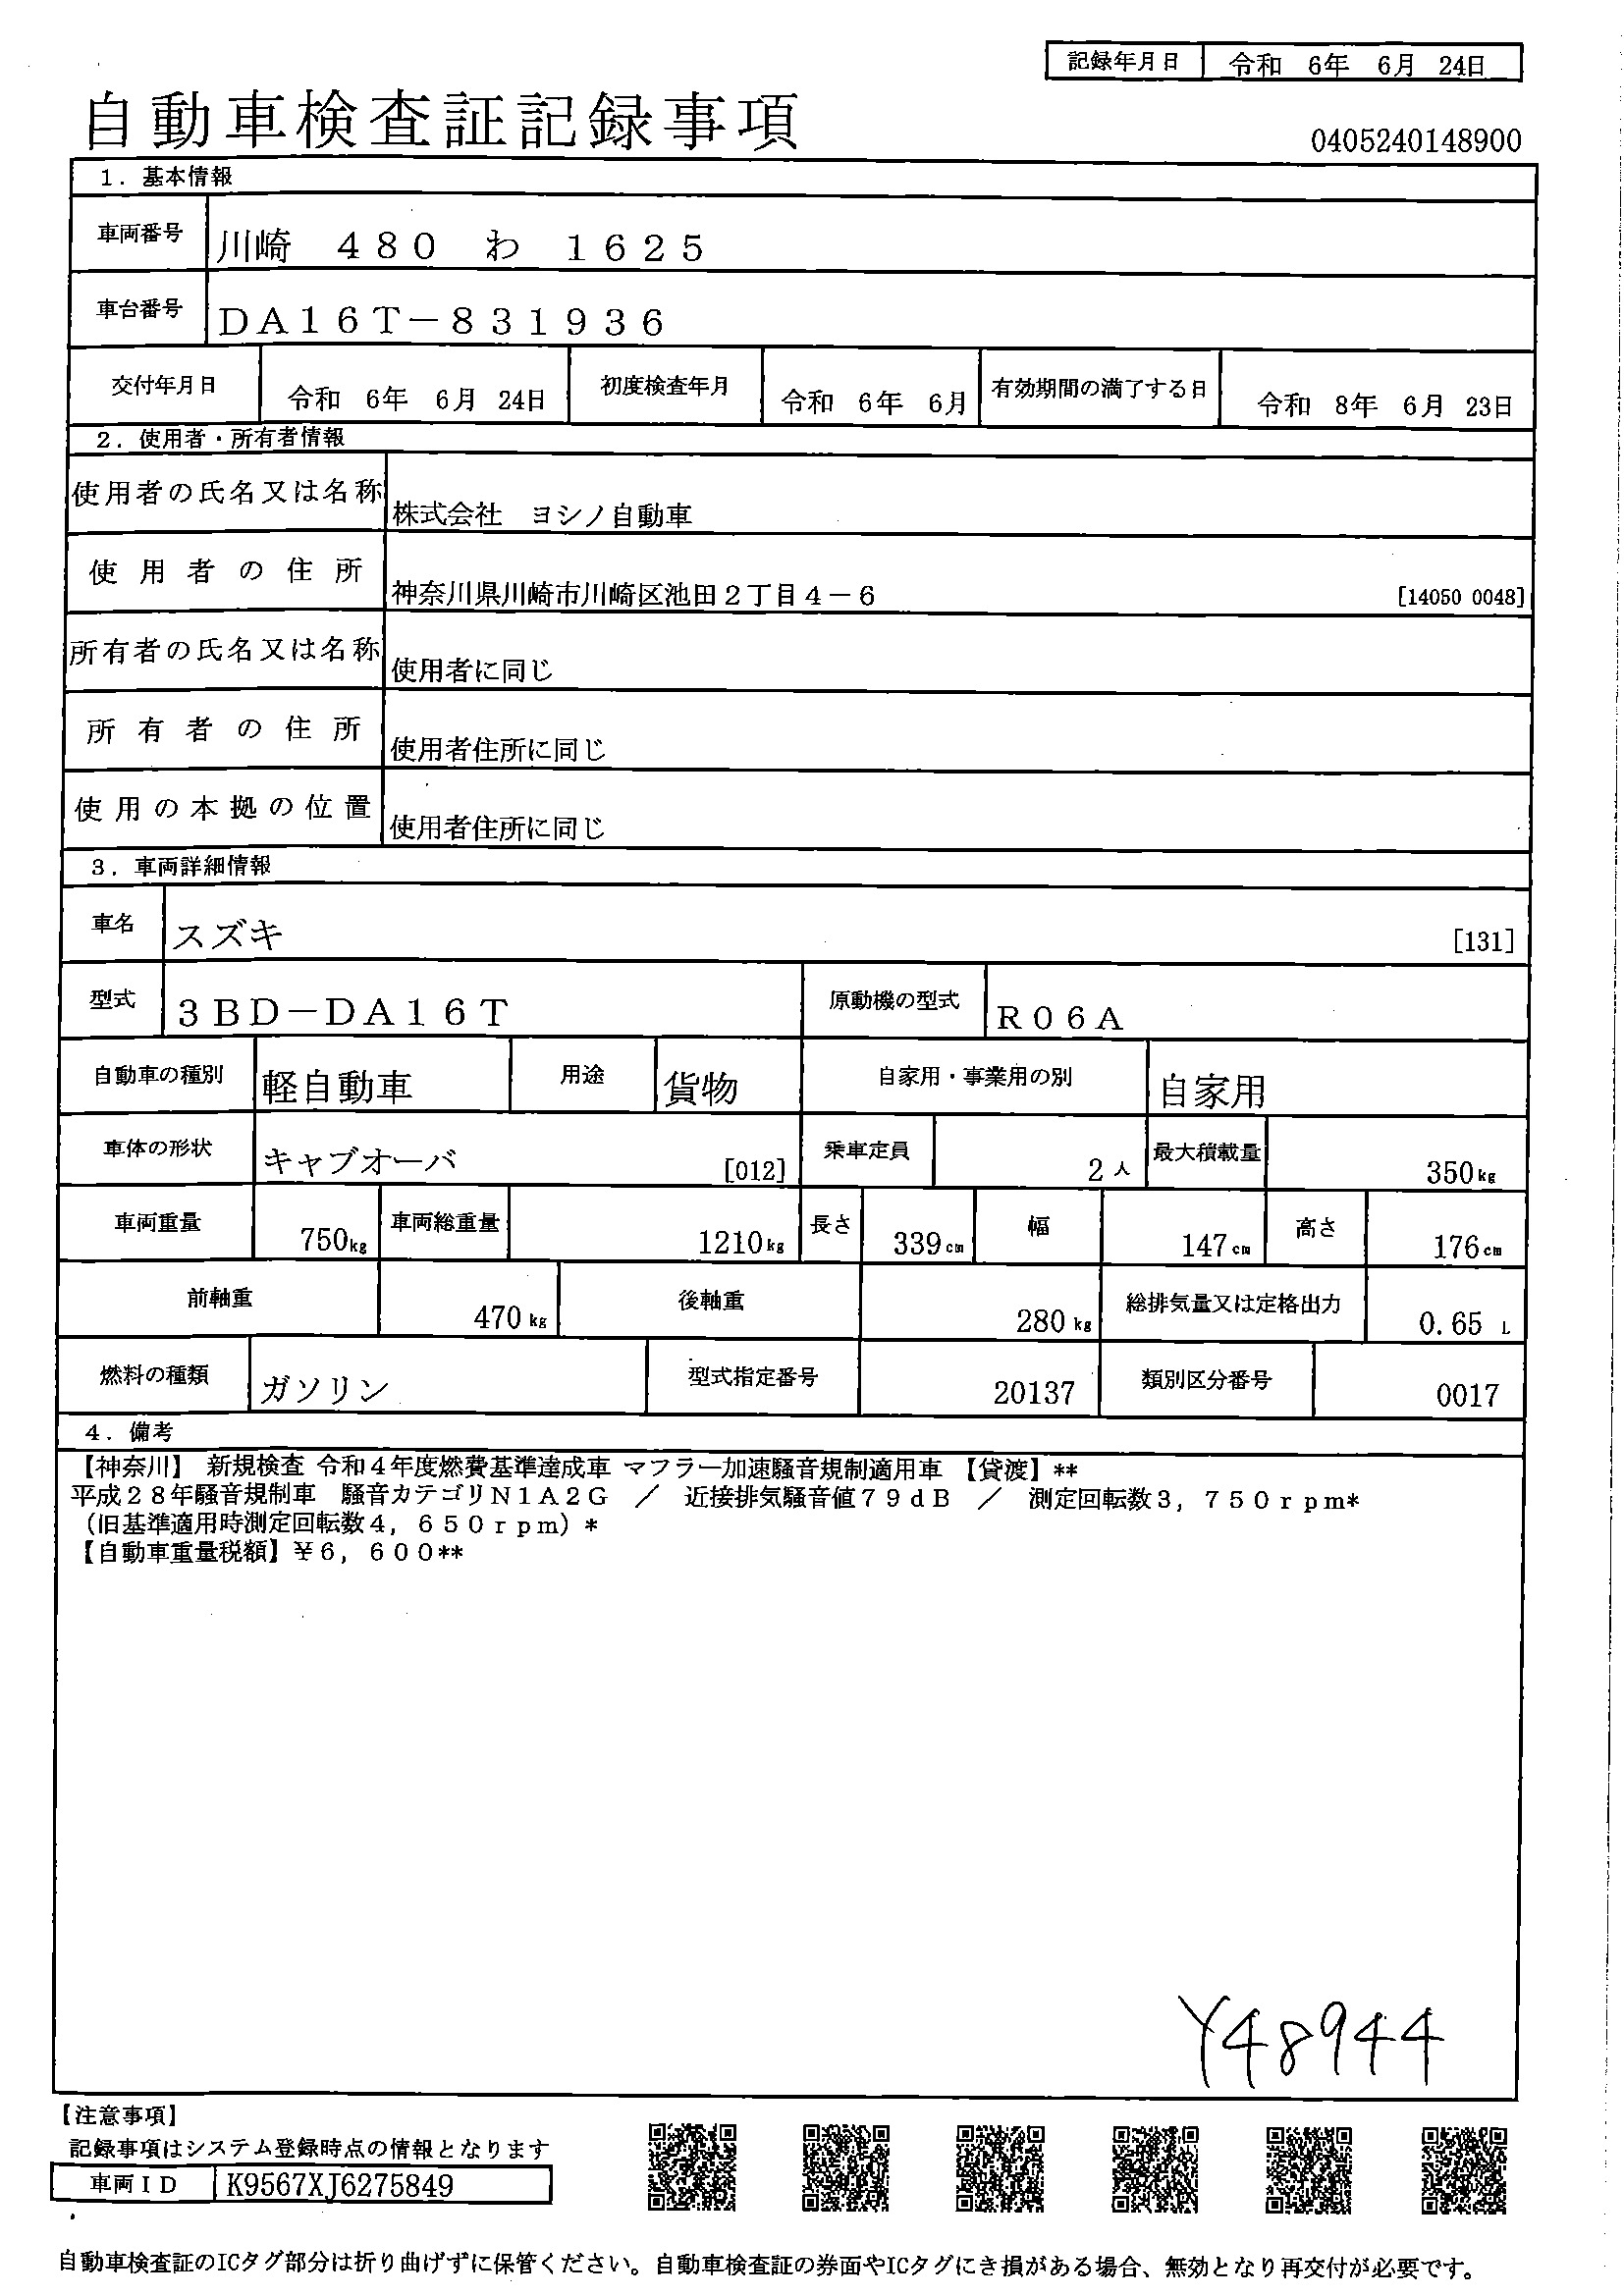 記録年月日 令和 6年 6月 24日
自動車検査証記録事項
0405240148900
1.基本情報
車両番号 川崎 480 わ 1625
車台番号 DA16T-831936
交付年月日 令和 6年 6月 24日 初度検査年月 令和 6年 6月 有効期間の満了する日 令和 8年 6月 23日
2.使用者・所有者情報
使用者の氏名又は名称 株式会社 ヨシノ自動車
使用者の住所 神奈川県川崎市川崎区池田2丁目4-6 [14050 0048]
所有者の氏名又は名称 使用者に同じ
所有者の住所 使用者住所に同じ
使用の本拠の位置 使用者住所に同じ
3.車両詳細情報
車名 スズキ [131]
型式 3BD-DA16T 原動機の型式 R06A
自動車の種別 軽自動車 用途 貨物 自家用・事業用の別 自家用
車体の形状 キャブオーバ [012] 乗車定員 2人 最大積載量 350kg
車両重量 750kg 車両総重量 1210kg 長さ 339cm 幅 147cm 高さ 176cm
前軸重 470kg 後軸重 280kg 総排気量又は定格出力 0.65 L
燃料の種類 ガソリン 型式指定番号 20137 類別区分番号 0017
4.備考
【神奈川】 新規検査 令和4年度燃費基準達成車 マフラー加速騒音規制適用車 【貸渡】**
平成28年騒音規制車 騒音カテゴリN1A2G / 近接排気騒音値79dB / 測定回転数3,750rpm*
(旧基準適用時測定回転数4,650rpm)*
【自動車重量税額】¥6,600**
Y48944
【注意事項】
記録事項はシステム登録時点の情報となります
車両ID K9567XJ6275849
自動車検査証のICタグ部分は折り曲げずに保管ください。自動車検査証の券面やICタグにき損がある場合、無効となり再交付が必要です。